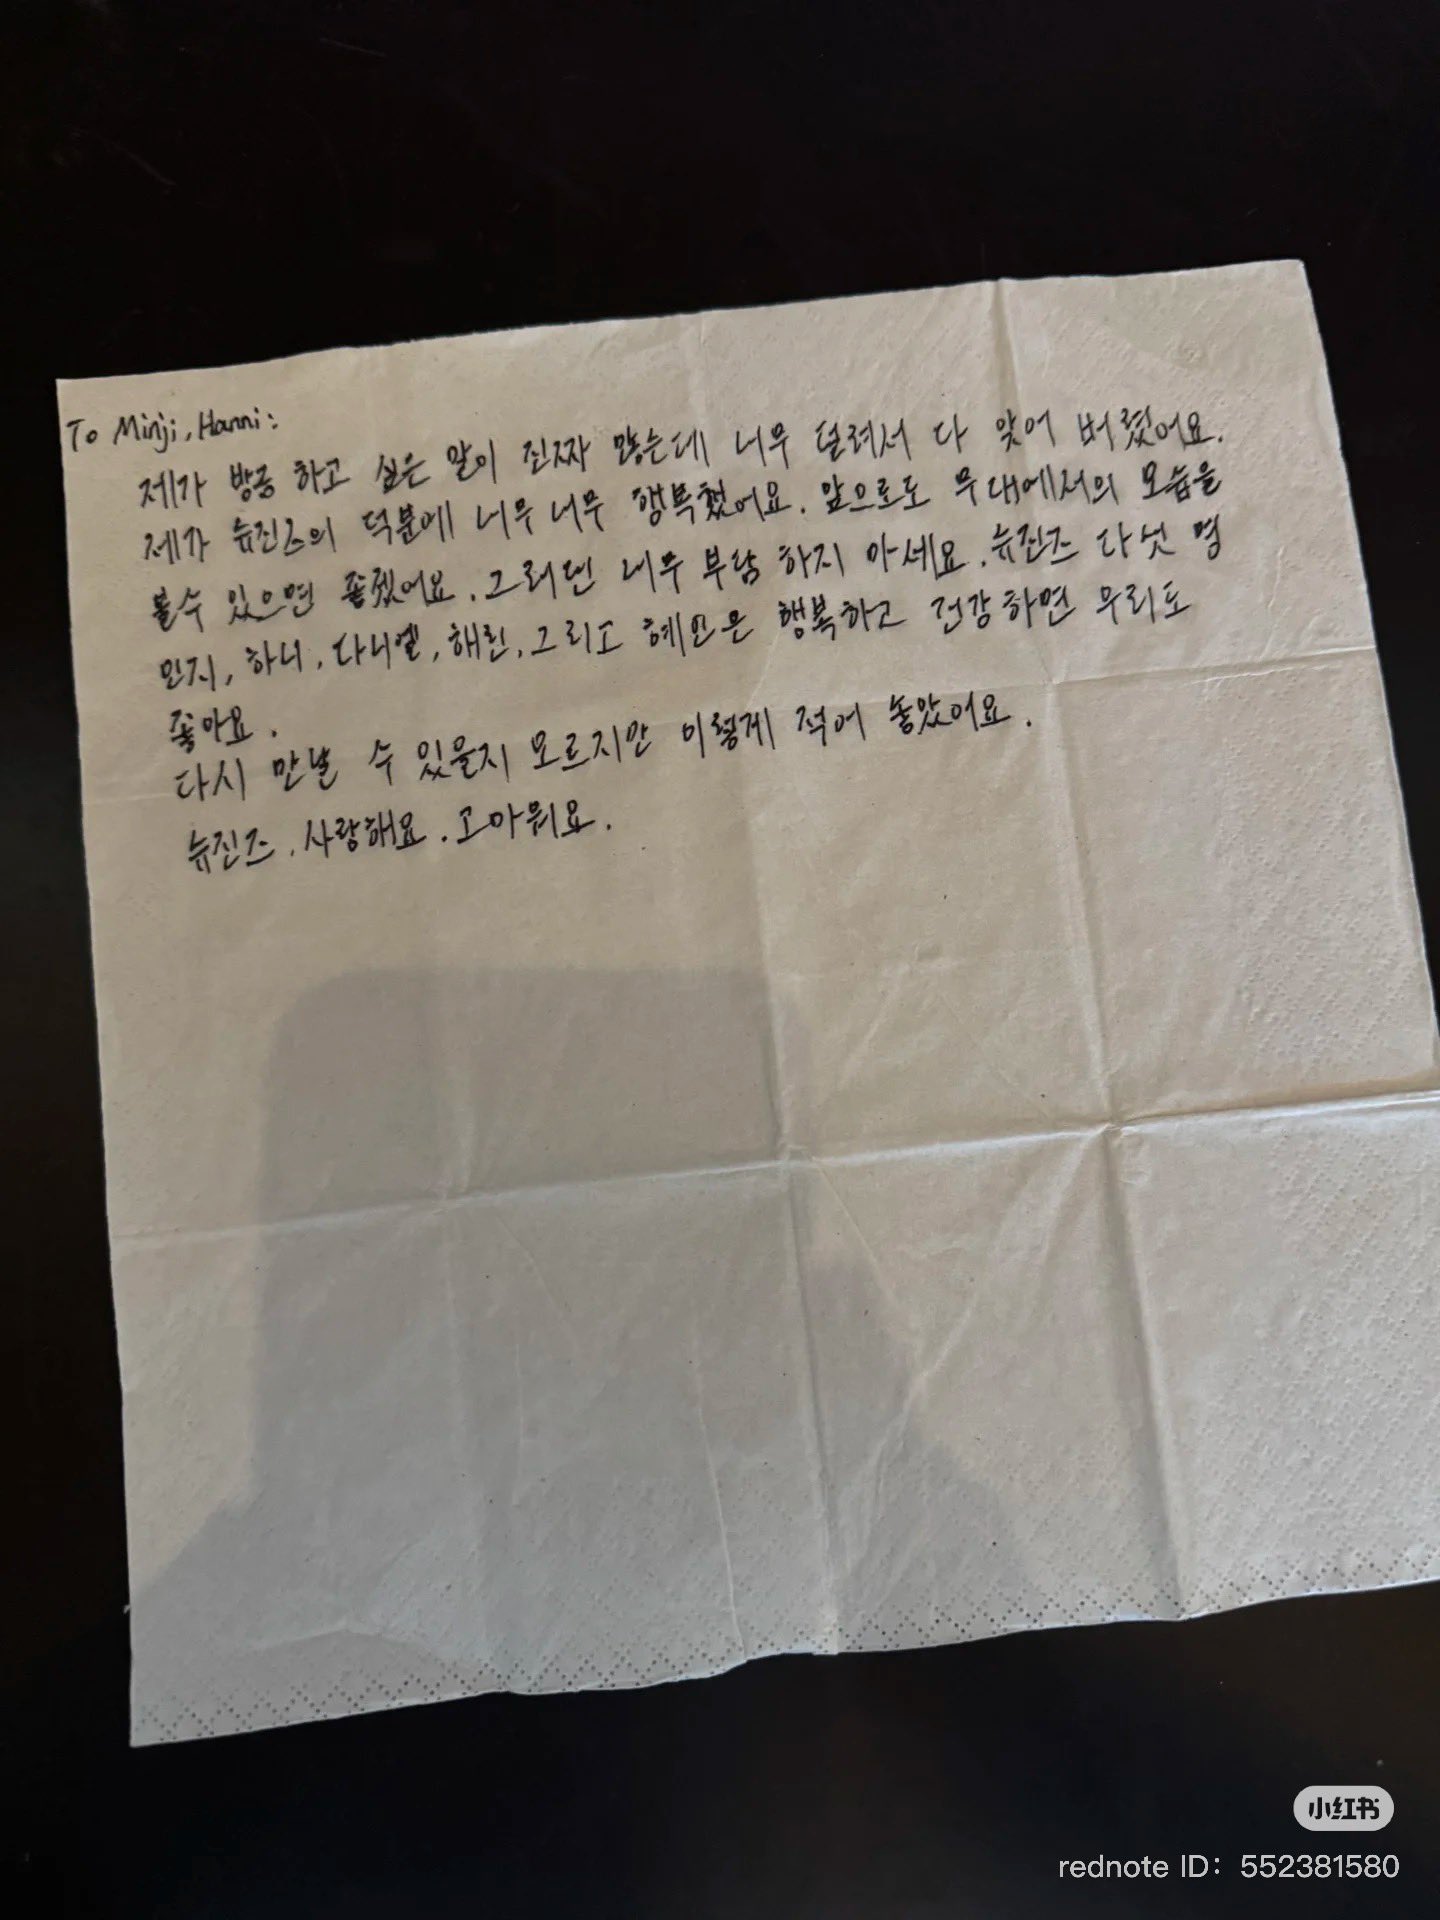 To Minji, Hanni:
제가 방금 하고 싶은 말이 진짜 많은데 너무 떨려서 다 잊어 버렸어요.
제가 뉴진즈의 덕분에 너무 너무 행복했어요. 앞으로도 무대에서의 모습을
볼수 있으면 좋겠어요. 그러면 너무 부담 하지 마세요. 뉴진즈 다섯 명
민지, 하니, 다니엘, 해린, 그리고 혜인은 행복하고 건강하면 우리도
좋아요.
다시 만날 수 있을지 모르지만 이렇게 적어 놓았어요.
뉴진즈. 사랑해요. 고마워요.
小红书
rednote ID: 552381580